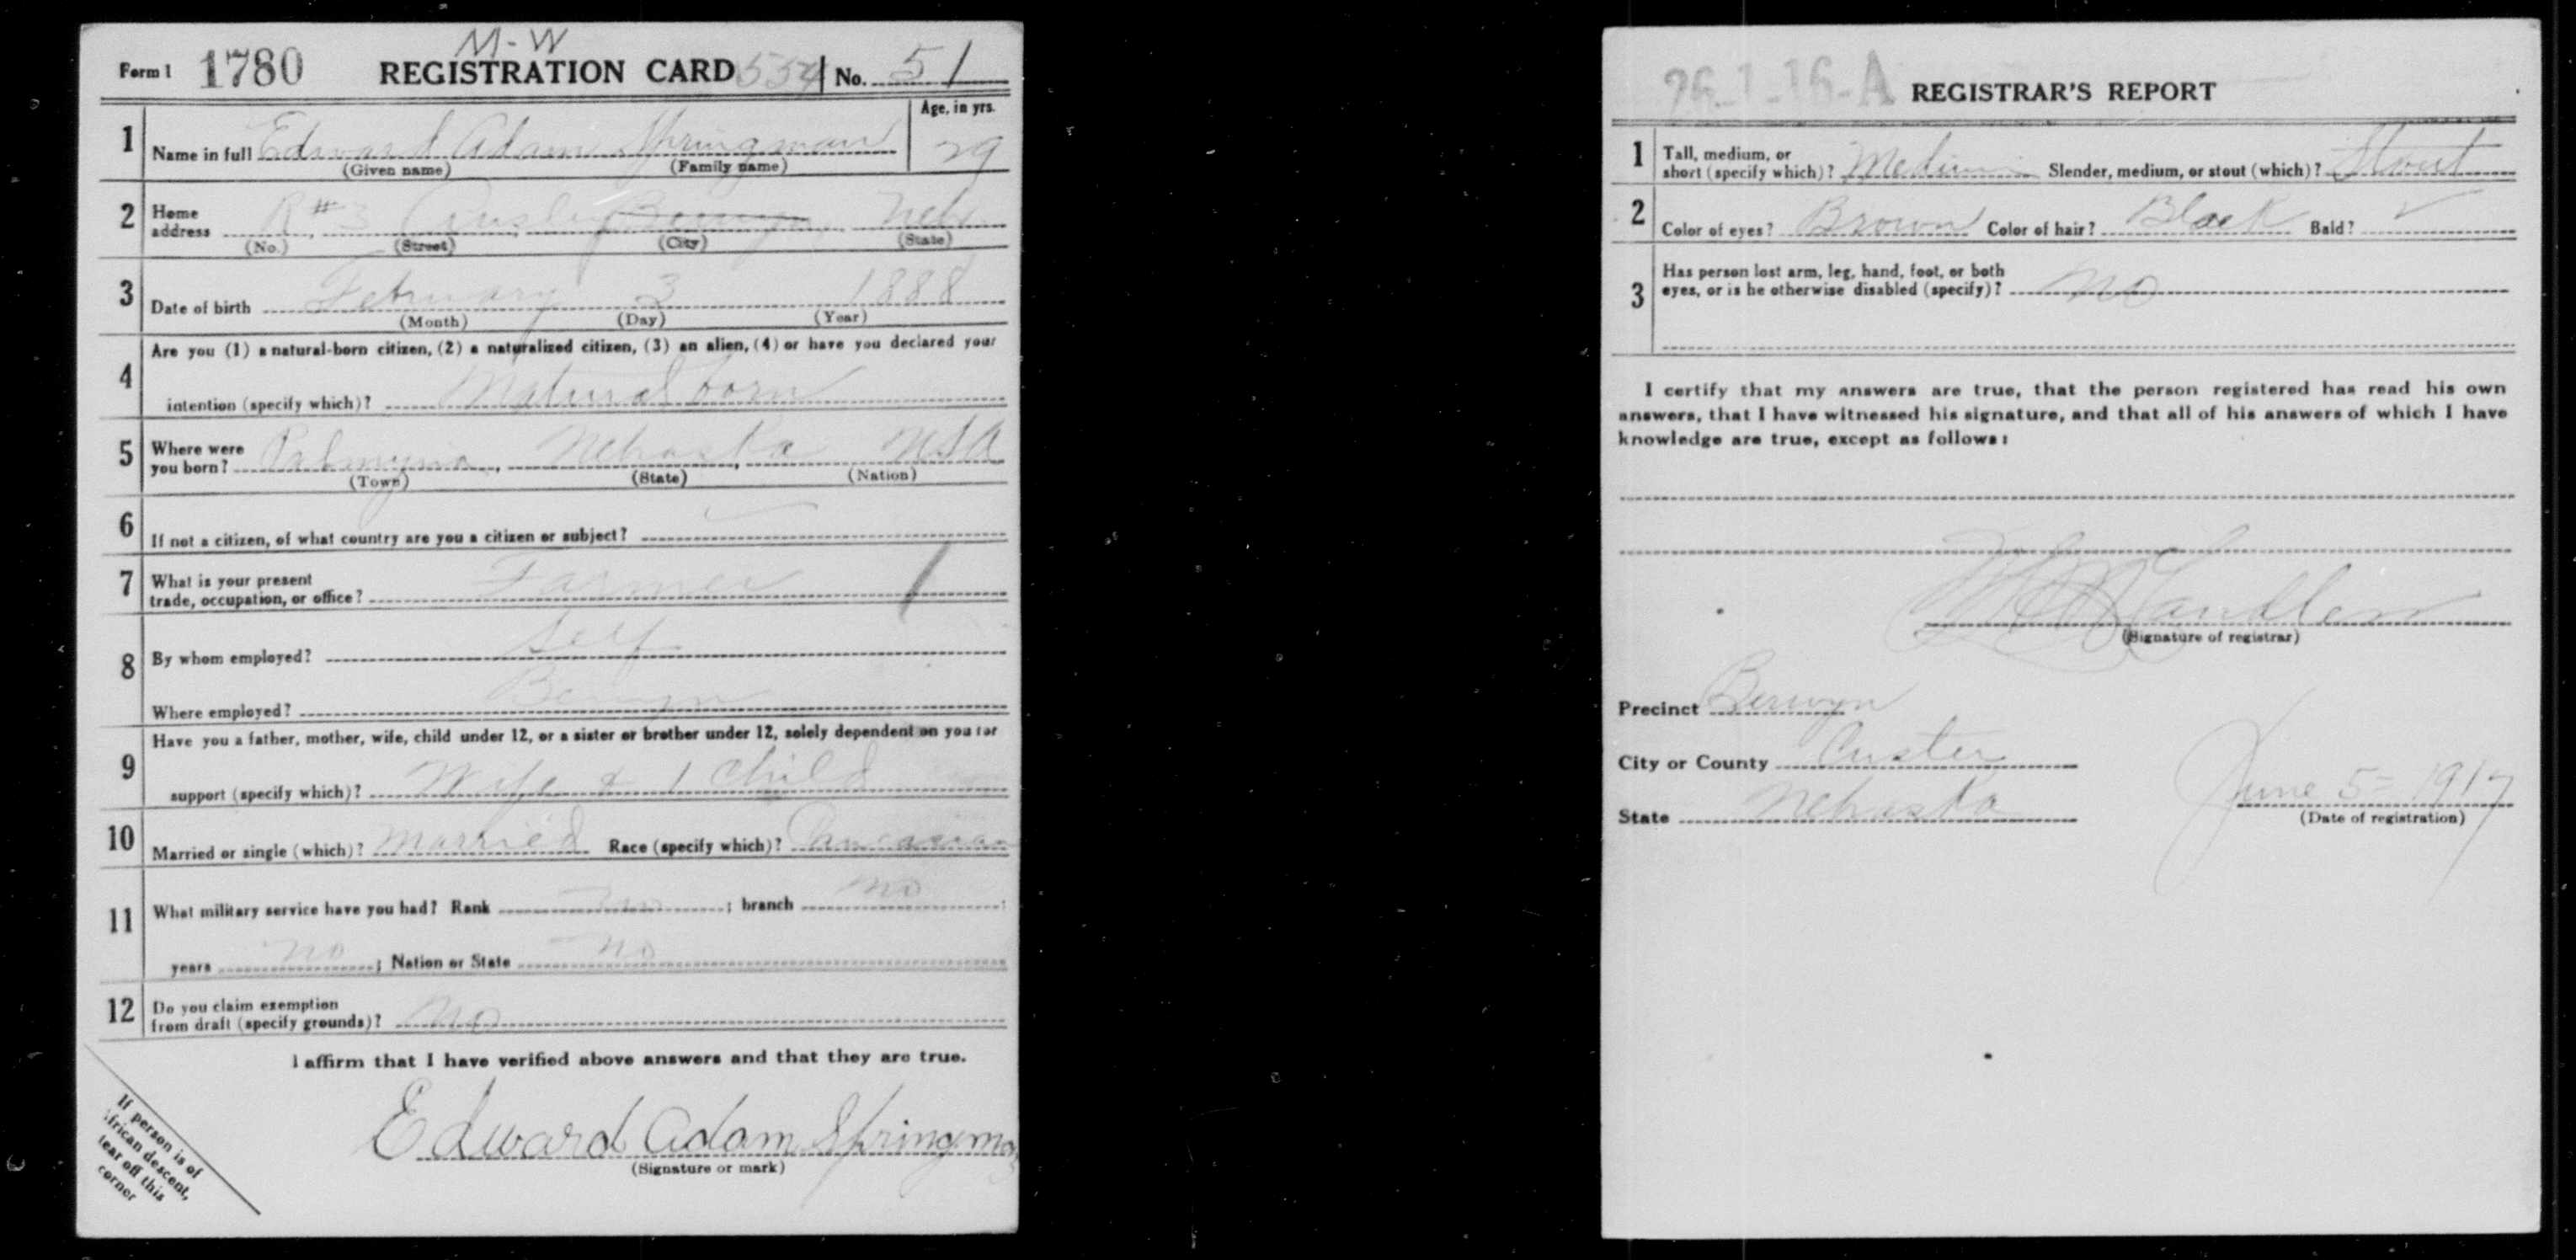 M-W
Form 1 1780 REGISTRATION CARD 554 No. 51
Age, in yrs.
1 Name in full Edward Adam Springman 29
(Given name) (Family name)
2 Home address R #3 Ansley Berwyn Nebr
(No.) (Street) (City) (State)
3 Date of birth February 3 1888
(Month) (Day) (Year)
Are you (1) a natural-born citizen, (2) a naturalized citizen, (3) an alien, (4) or have you declared your
4 intention (specify which)? Natural born
5 Where were you born? Palmyra, Nebraska, USA
(Town) (State) (Nation)
6 If not a citizen, of what country are you a citizen or subject?
7 What is your present
trade, occupation, or office? Farmer
8 By whom employed? Self
Where employed? Berwyn
Have you a father, mother, wife, child under 12, or a sister or brother under 12, solely dependent on you for
9 support (specify which)? Wife & 1 child
10 Married or single (which)? Married Race (specify which)? Caucasian
11 What military service have you had? Rank no ; branch no ;
years no ; Nation or State no
12 Do you claim exemption
from draft (specify grounds)? No
I affirm that I have verified above answers and that they are true.
Edward Adam Springman
(Signature or mark)
If person is of
African descent,
tear off this
corner
26-1-16-A REGISTRAR'S REPORT
1 Tall, medium, or
short (specify which)? Medium Slender, medium, or stout (which)? Stout
2 Color of eyes? Brown Color of hair? Black Bald?
3 Has person lost arm, leg, hand, foot, or both
eyes, or is he otherwise disabled (specify)? No
I certify that my answers are true, that the person registered has read his own
answers, that I have witnessed his signature, and that all of his answers of which I have
knowledge are true, except as follows:
(Signature of registrar)
Precinct Berwyn
City or County Custer
State Nebraska
June 5 - 1917
(Date of registration)